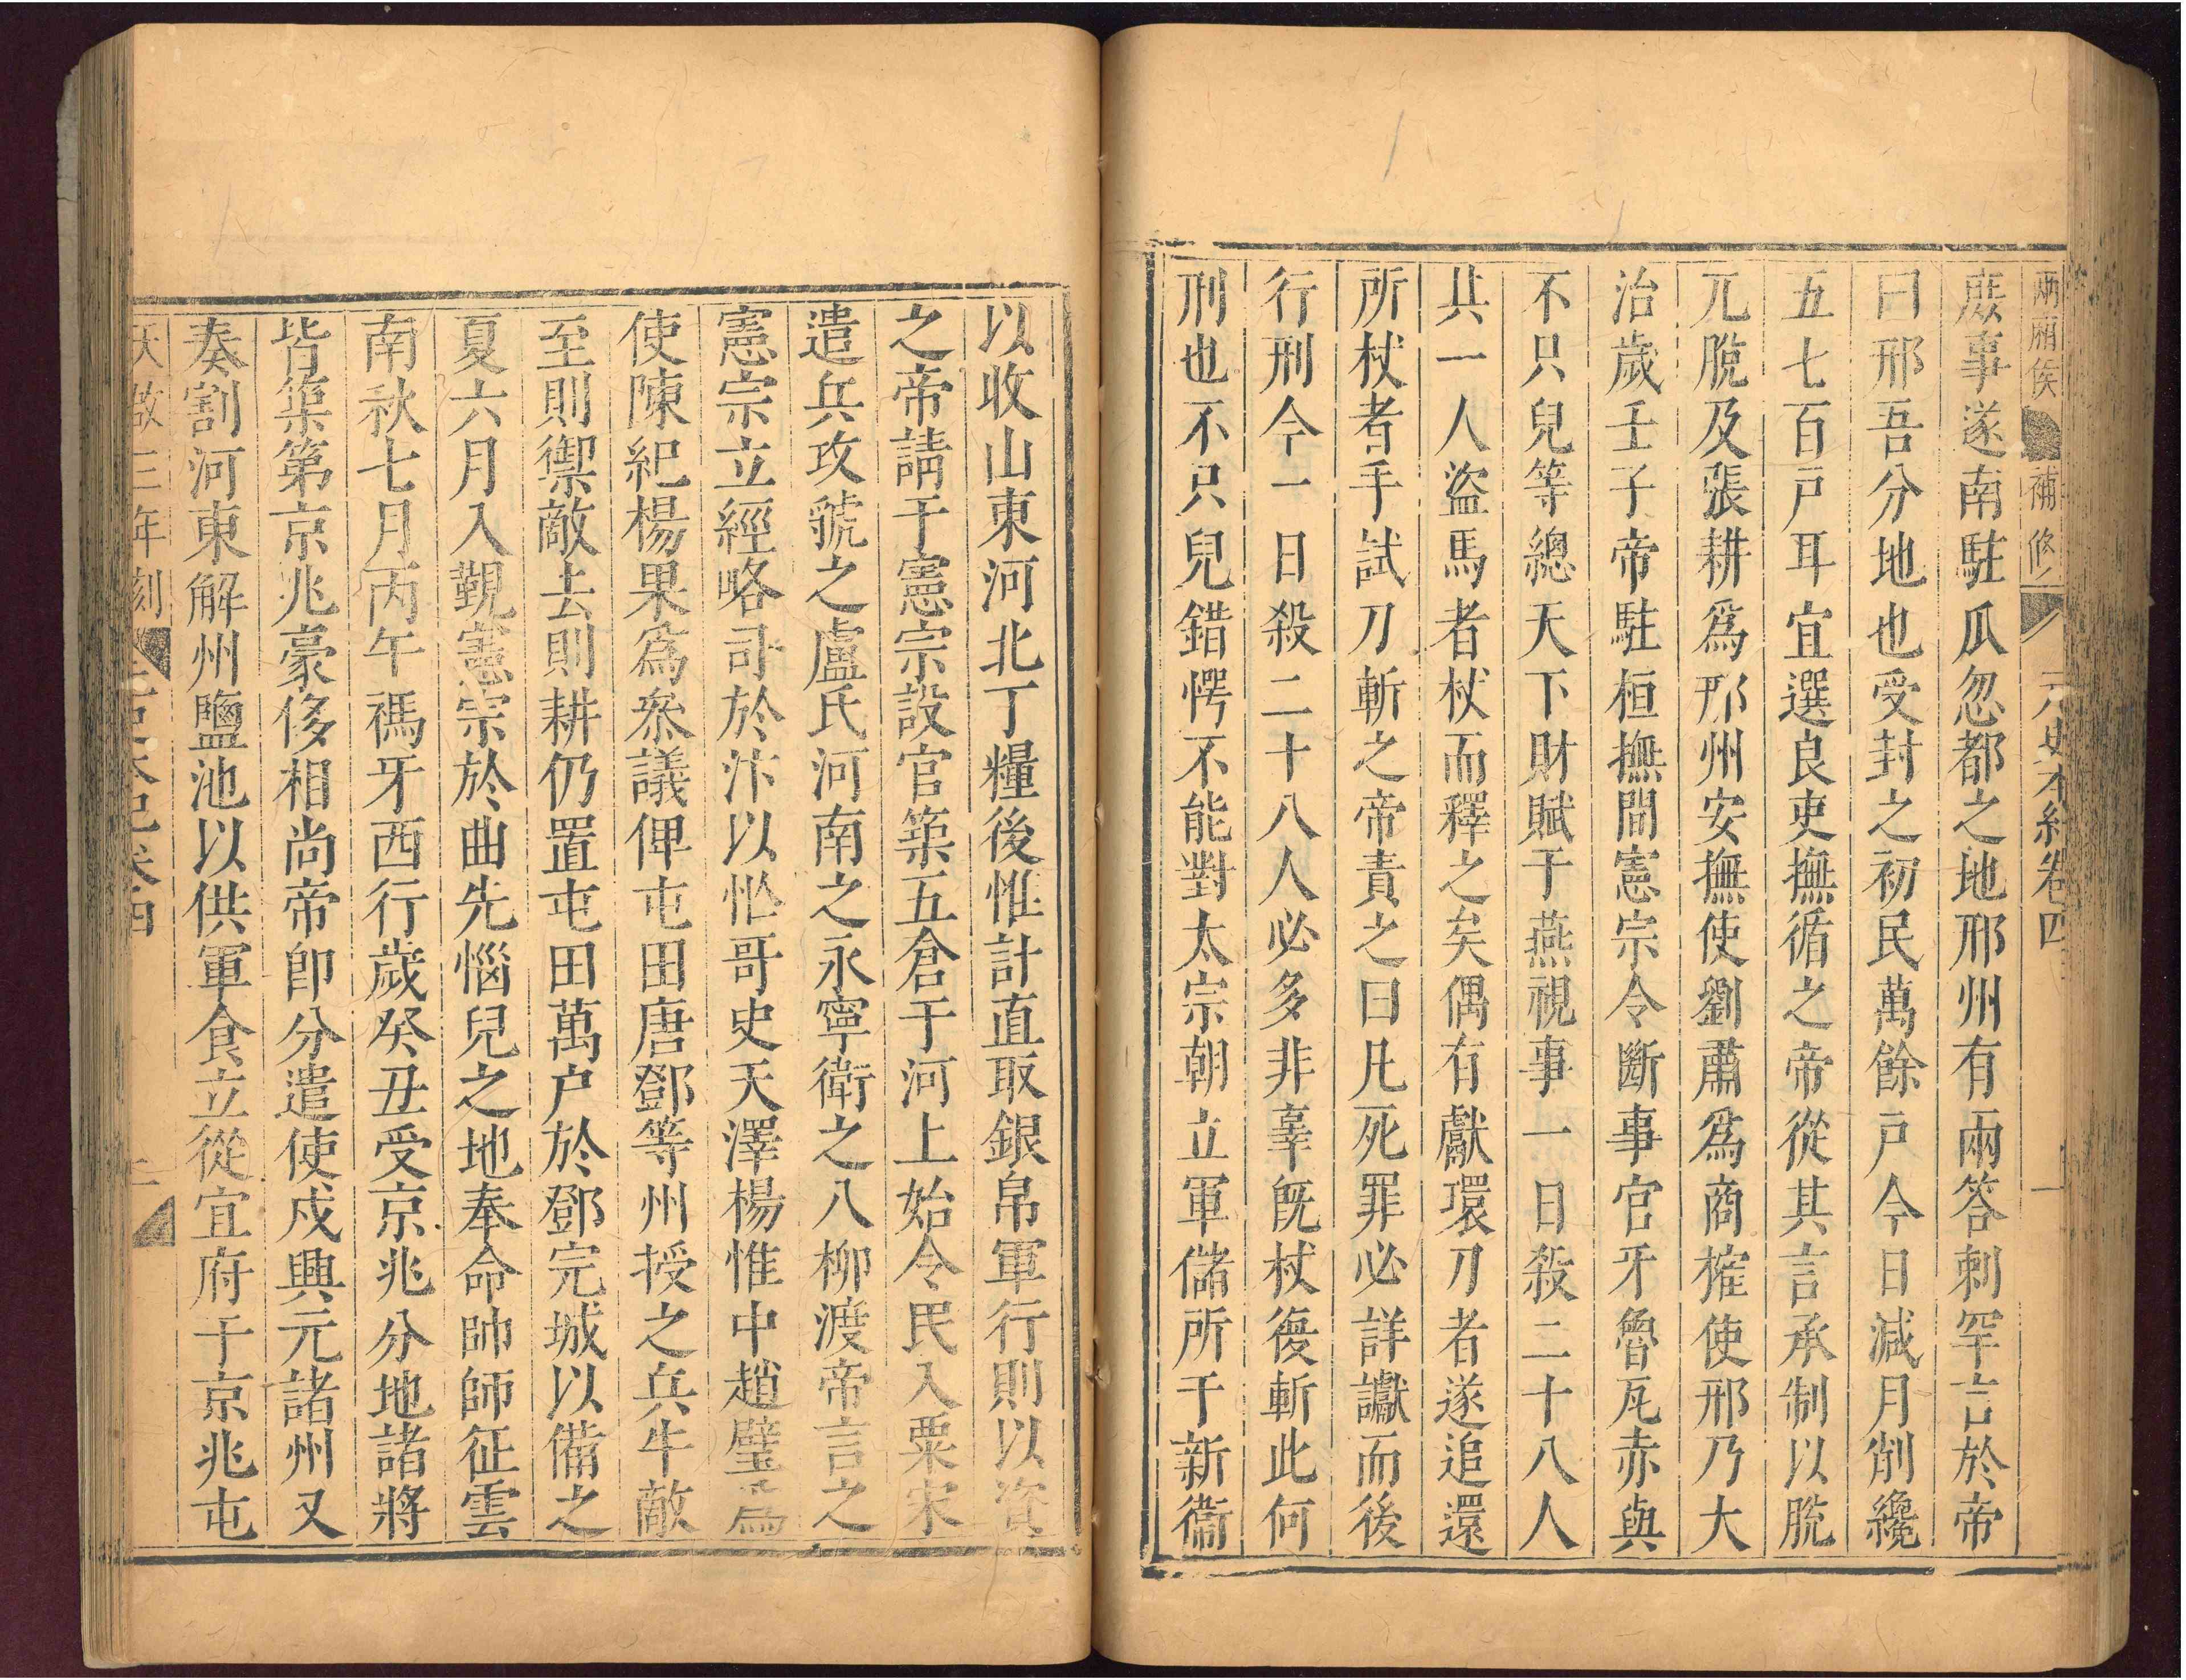 兩廂俟補修 元史本紀卷四 一
庶事遂南駐瓜忽都之地邢州有兩答剌罕言於帝
曰邢吾分地也受封之初民萬餘戸今日減月削纔
五七百戸耳宜選良吏撫循之帝從其言承制以脫
兀脫及張耕爲邢州安撫使劉肅爲商榷使邢乃大
治歲壬子帝駐桓撫間憲宗令斷事官牙魯瓦赤與
不只兒等總天下財賦于燕視事一日殺二十八人
其一人盜馬者杖而釋之矣偶有獻環刀者遂追還
所杖者手試刀斬之帝責之曰凡死罪必詳讞而後
行刑今一日殺二十八人必多非辜旣杖復斬此何
刑也不只兒錯愕不能對太宗朝立軍儲所于新衞
以收山東河北丁糧後惟計直取銀帛軍行則以資
之帝請于憲宗設官築五倉于河上始令民入粟宋
遣兵攻虢之盧氏河南之永寧衛之八柳渡帝言之
憲宗立經略司於汴以忙哥史天澤楊惟中趙璧爲
使陳紀楊果爲叅議俾屯田唐鄧等州授之兵牛敵
至則禦敵去則耕仍置屯田萬户於鄧完城以備之
夏六月入覲憲宗於曲先惱兒之地奉命帥師征雲
南秋七月丙午禡牙西行歲癸丑受京兆分地諸將
皆築第京兆豪侈相尚帝卽分遣使戍興元諸州又
奏割河東解州鹽池以供軍食立從宜府于京兆屯
天啟三年刻 元史本紀卷四 二